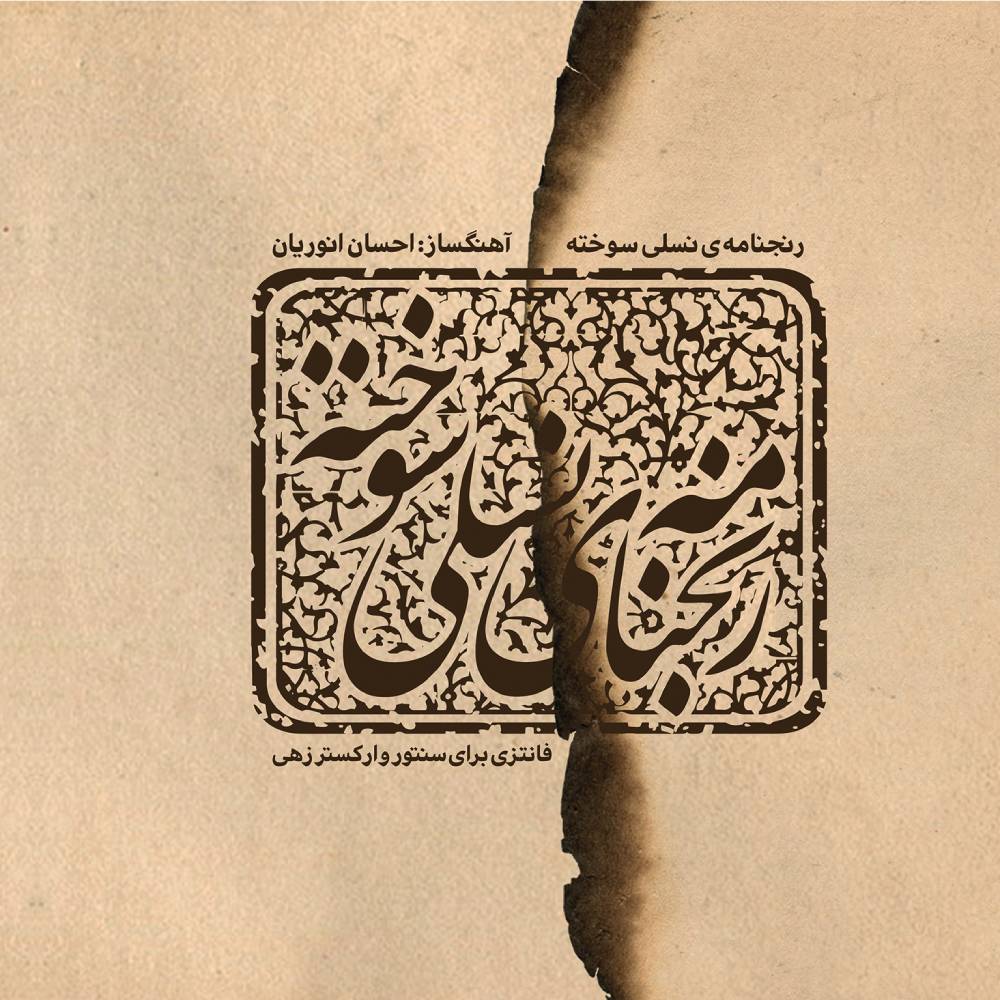 رنجنامه‌ی نسلی سوخته
آهنگساز: احسان انوریان
رنجنامه‌ی نسلی سوخته
فانتزی برای سنتور و ارکستر زهی